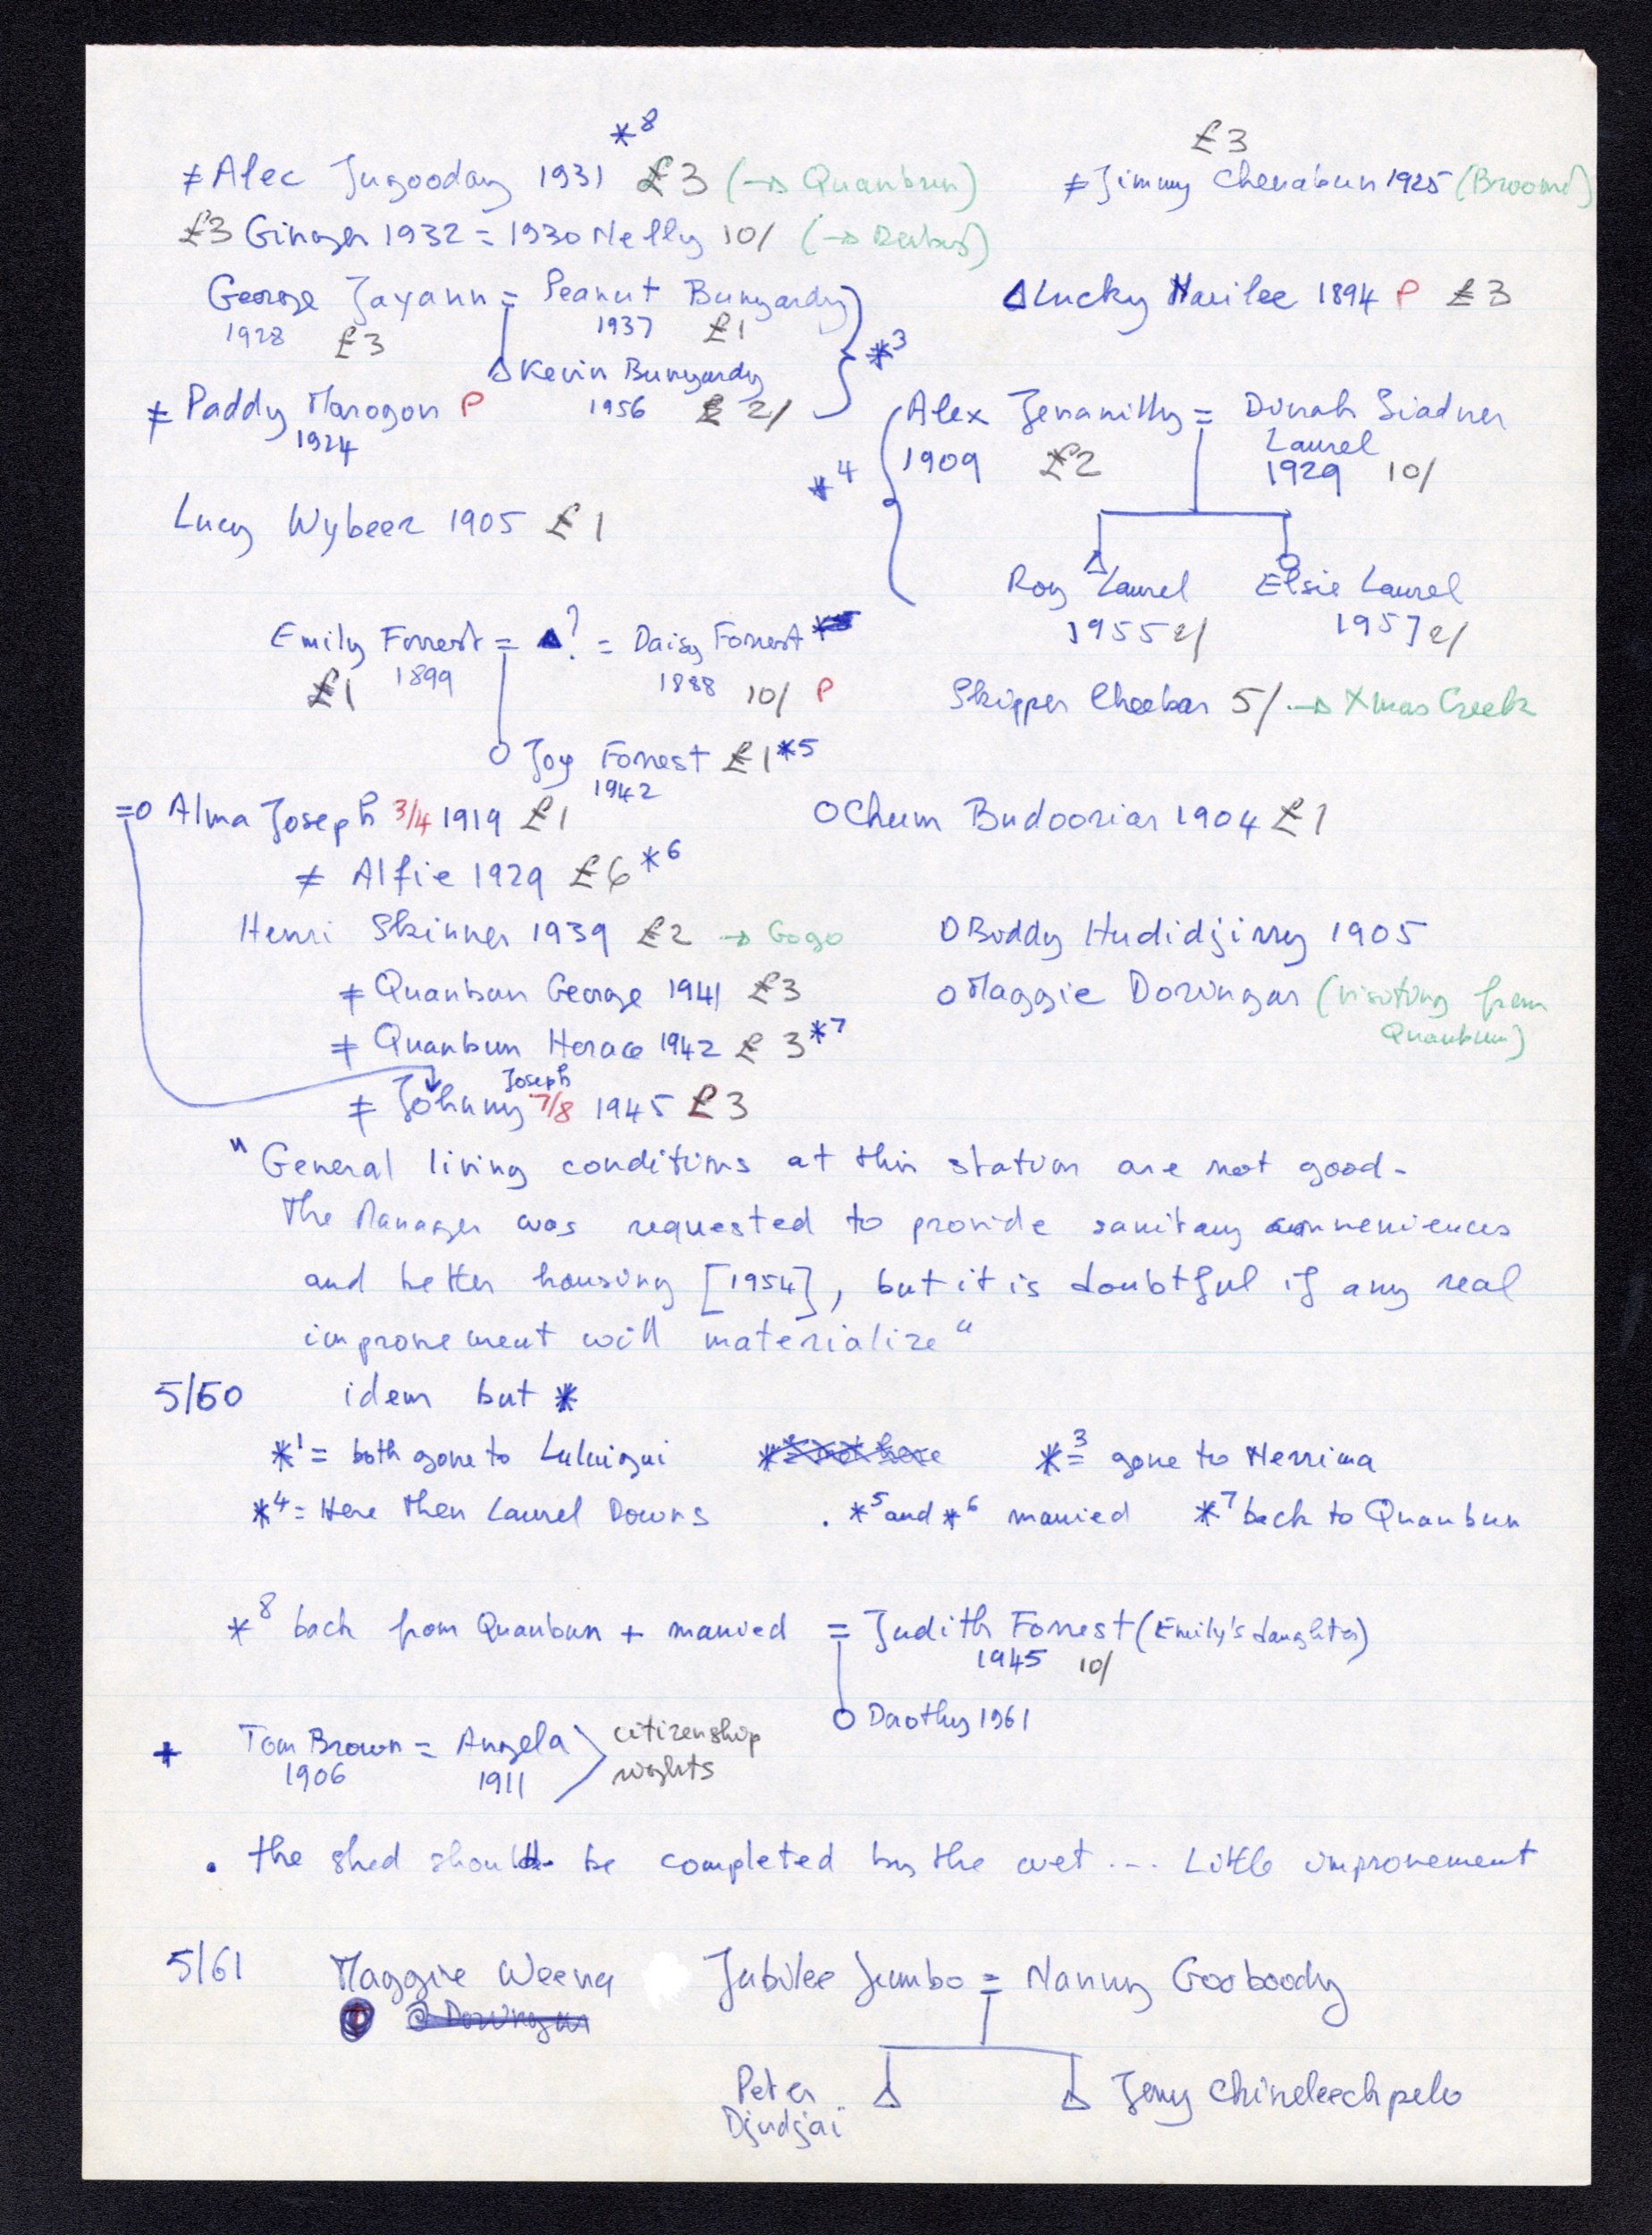 *8
£3
≠ Alec Jugooday 1931 £3 (→ Quanbun)
≠ Jimmy Chenabun 1925 (Broome)
£3 Ginger 1932 = 1930 Nelly 10/ (→ Derby)
George Jayann = Peanut Bungardy
1928 £3 1937 £1
Δ Lucky Narilee 1894 P £3
Δ Kevin Bungardy
1956 £ 2/
*3
≠ Paddy Marogon P
1924
Alex Jenamilly = Dinah Siadner
Laurel
1909 £2 1929 10/
*4
Lucy Wybeer 1905 £1
Roy Laurel Elsie Laurel
1955 2/ 1957 2/
Emily Forrest = ▲? = Daisy Forrest
£1 1899 1888 10/ P
Skipper Cheebar 5/ → Xmas Creek
O Joy Forrest £1 *5
1942
=O Alma Joseph 3/4 1919 £1
O Chum Budooriar 1904 £1
≠ Alfie 1929 £6 *6
Henri Skinner 1939 £2 → Gogo
Buddy Hudidjirry 1905
≠ Quanbun George 1941 £3
O Maggie Doringar (visiting from
Quanbun)
≠ Quanbun Horace 1942 £3 *7
Joseph
≠ Johnny 7/8 1945 £3
"General living conditions at this station are not good -
The Manager was requested to provide sanitary conveniences
and better housing [1954], but it is doubtful if any real
improvement will materialize"
5/60 idem but *
*1 = both gone to Luluigui *3 = gone to Nerrima
*4 = Here then Laurel Downs . *5 and *6 married *7 back to Quanbun
*8 back from Quanbun + married = Judith Forrest (Emily's daughter)
1945 10/
O Daothy 1961
+ Tom Brown = Angela citizenship
1906 1911 rights
. the shed should be completed by the wet ... Little improvement
5/61 Maggie Weena Jubilee Jumbo = Nanny Gooboody
Peter Δ Δ Jerry Chineleechpelo
Djudjai